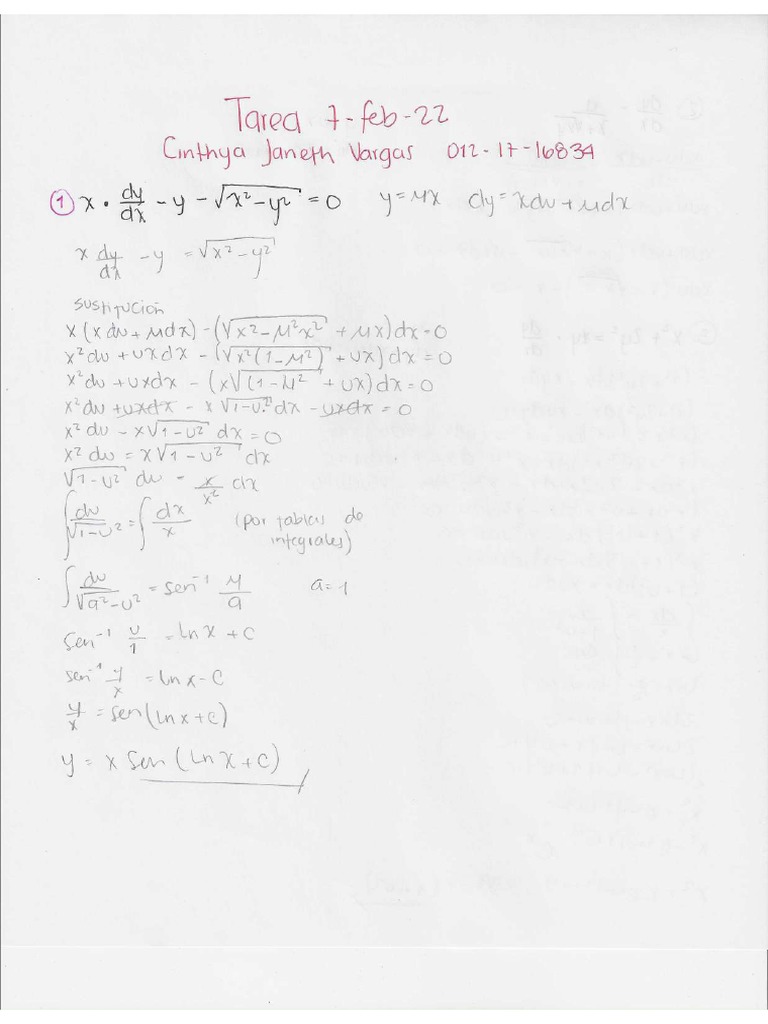 Tarea 7-feb-22
Cinthya Janeth Vargas 012-17-16834
① x · dy/dx - y - √(x² - y²) = 0 y = μx dy = xdu + μdx
x dy/dx - y = √(x² - y²)
sustitución
x(xdu + μdx) - (√(x² - μ²x²) + μx)dx = 0
x²du + uxdx - (√(x²(1 - μ²)) + ux)dx = 0
x²du + uxdx - (x√(1 - μ²) + ux)dx = 0
x²du + uxdx - x√(1 - u²) dx - uxdx = 0
x²du - x√(1 - u²) dx = 0
x²du = x√(1 - u²) dx
√(1 - u²) du = x/x² dx
∫ du/√(1 - u²) = ∫ dx/x (por tablas de
integrales)
∫ du/√(a² - u²) = sen⁻¹ μ/a a = 1
sen⁻¹ u/1 = ln x + c
sen⁻¹ y/x = ln x - c
y/x = sen(ln x + c)
y = x sen(ln x + c)